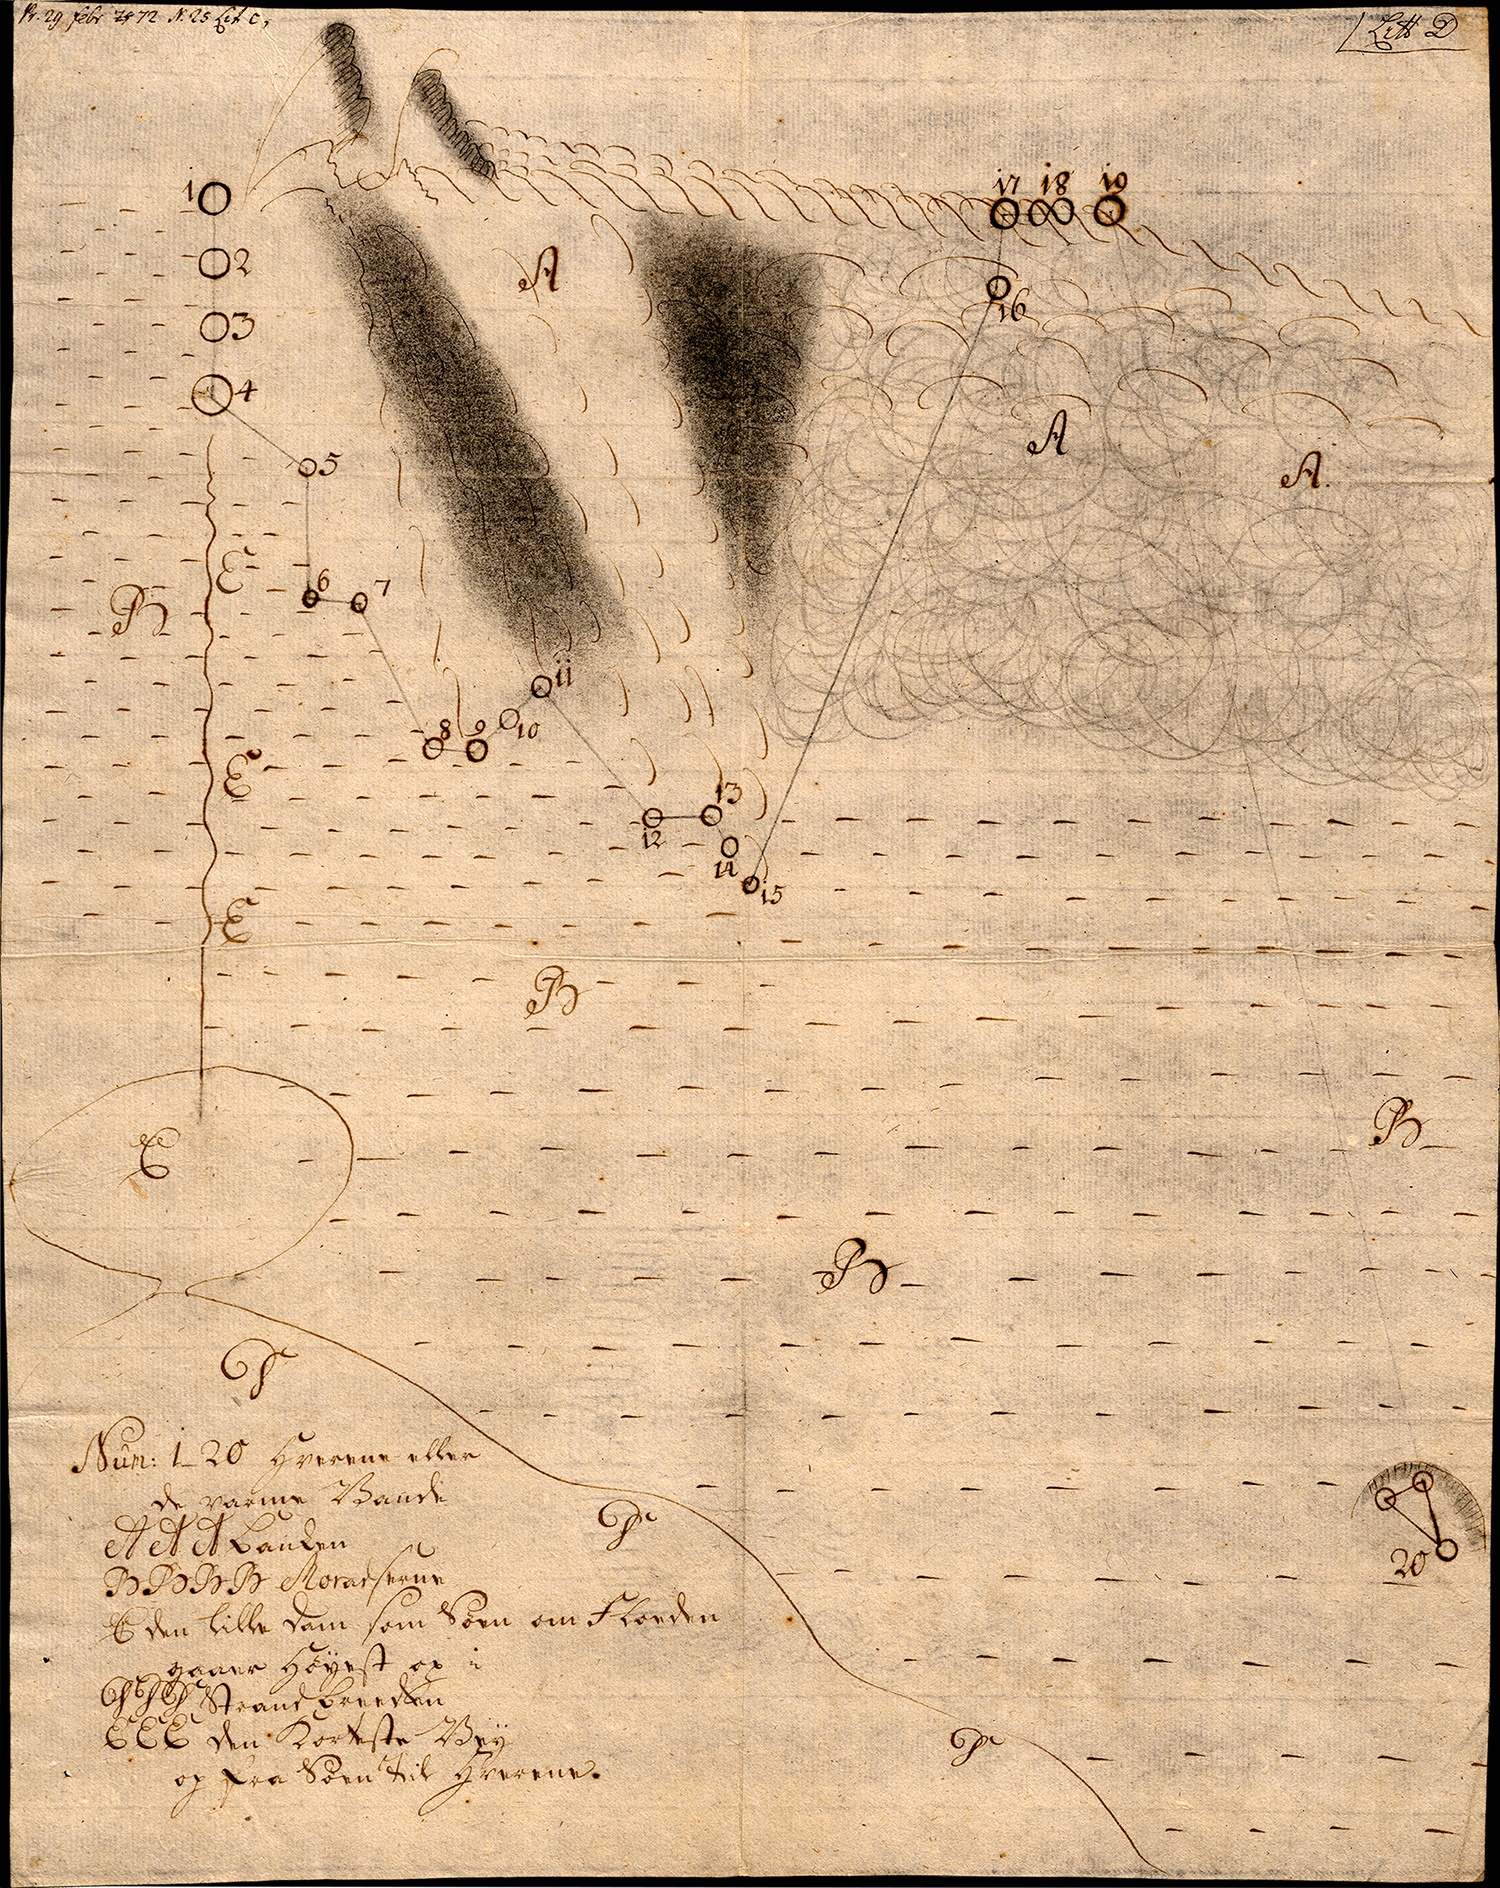 Pr. 29 febr 1772 N. 25 Lit C,
Litt D
1
2
3
4
5
6
7
8
9
10
11
12
13
14
15
16
17
18
19
20
A
A
A.
B
B
B
B
E
E
E
Num: 1_20 Hverene eller
de varme Vande
A A A Banken
B B B B Moradserne
den lille dam som Søen om Floeden
gaaer Høyest op i
Strand breeden
E E E den Korteste Vey
op fra Søen til Hverene.